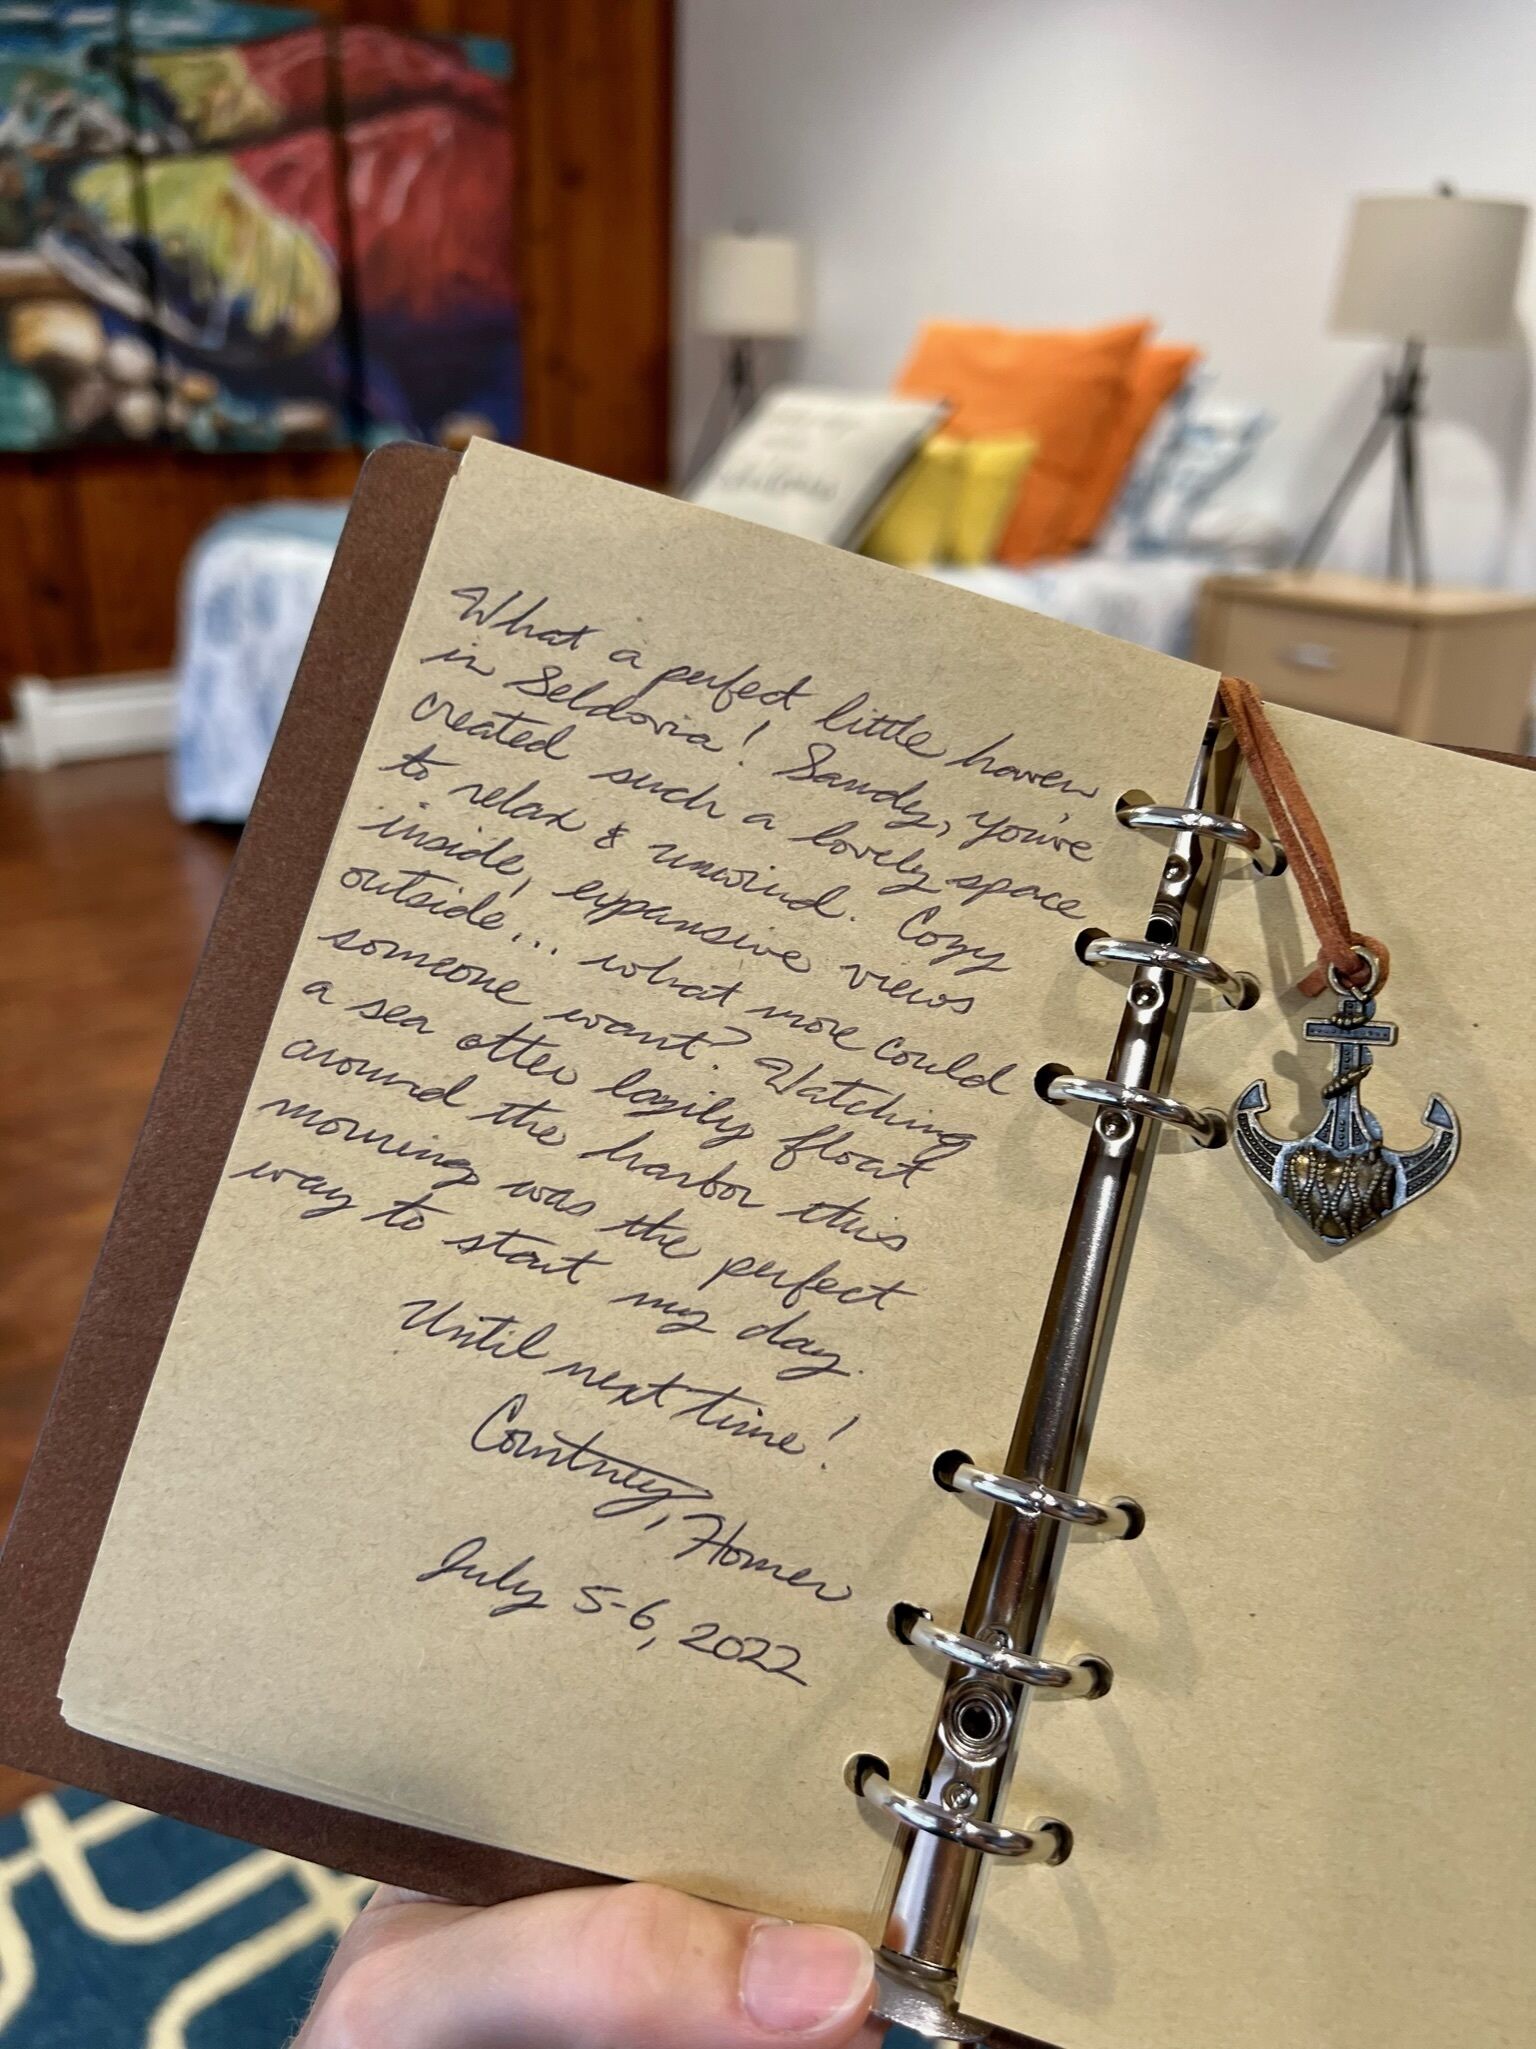 What a perfect little haven
in Seldovia! Sandy, you've
created such a lovely space
to relax & unwind. Cozy
inside, expansive views
outside... what more could
someone want? Watching
a sea otter lazily float
around the harbor this
morning was the perfect
way to start my day.
Until next time!
Courtney, Homer
July 5-6, 2022